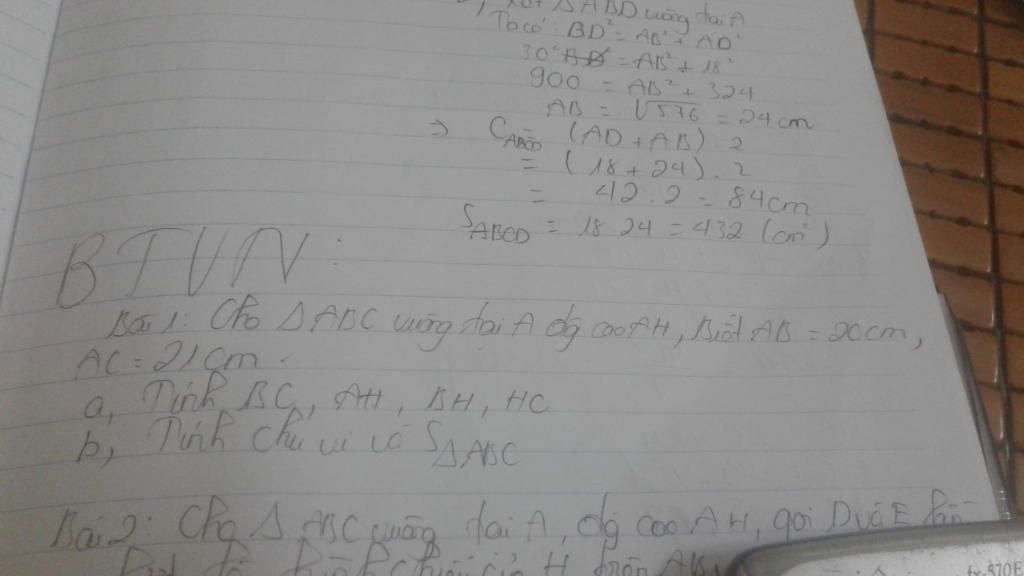 Xét △ABD vuông tại A
Ta có: BD² = AB² + AD²
30² = AB² + 18²
900 = AB² + 324
AB = √576 = 24cm
⇒ C ABCD (AD + AB) . 2
= (18 + 24) . 2
= 42 . 2 = 84cm
S ABCD = 18 24 = 432 (cm²)
BTVN:
Bài 1: Cho △ABC vuông tại A đg cao AH, Biết AB = 20cm,
AC = 21cm.
a, Tính BC, AH, BH, HC
b, Tính chu vi và S△ABC
Bài 2: Cho △ ABC vuông tại A, đg cao AH, gọi D và E lần
H trên AB
fx-570E